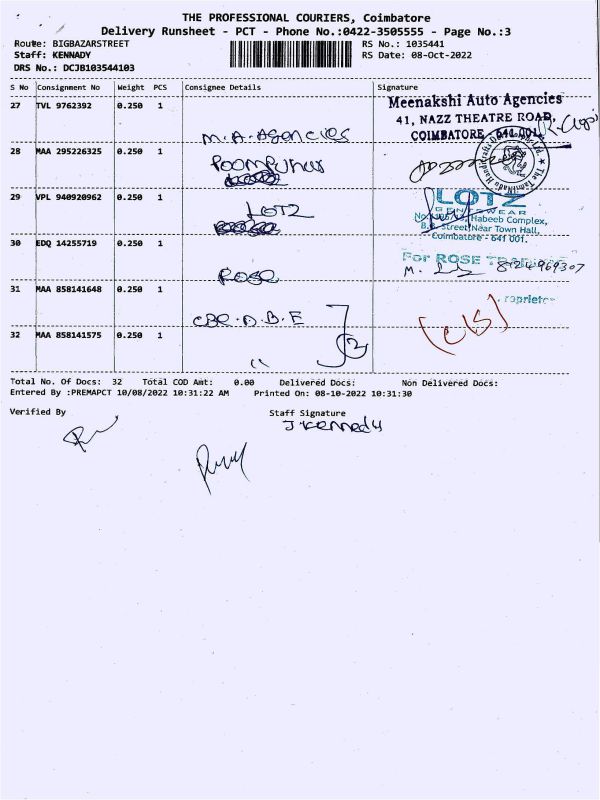 THE PROFESSIONAL COURIERS, Coimbatore
Delivery Runsheet - PCT - Phone No.:0422-3505555 - Page No.:3
Route: BIGBAZARSTREET
RS No.: 1035441
Staff: KENNADY
RS Date: 08-Oct-2022
DRS No.: DCJB103544103
S No Consignment No Weight PCS Consignee Details Signature
27 TVL 9762392 0.250 1
Meenakshi Auto Agencies
41, NAZZ THEATRE ROAD,
COIMBATORE - 641 001.
M.A. Agencies
28 MAA 295226325 0.250 1 Poompuhar
29 VPL 940920962 0.250 1 LOTZ
LOTZ
GENTSWEAR
Habeeb Complex,
Street, Near Town Hall,
Coimbatore - 641 001.
30 EDQ 14255719 0.250 1
For ROSE
M. 8124969307
Rose
31 MAA 858141648 0.250 1
roprietor
CBE. D.B.E
32 MAA 858141575 0.250 1
" 2
Total No. Of Docs: 32 Total COD Amt: 0.00 Delivered Docs: Non Delivered Docs:
Entered By :PREMAPCT 10/08/2022 10:31:22 AM Printed On: 08-10-2022 10:31:30
Verified By
Staff Signature
J. Kennedy